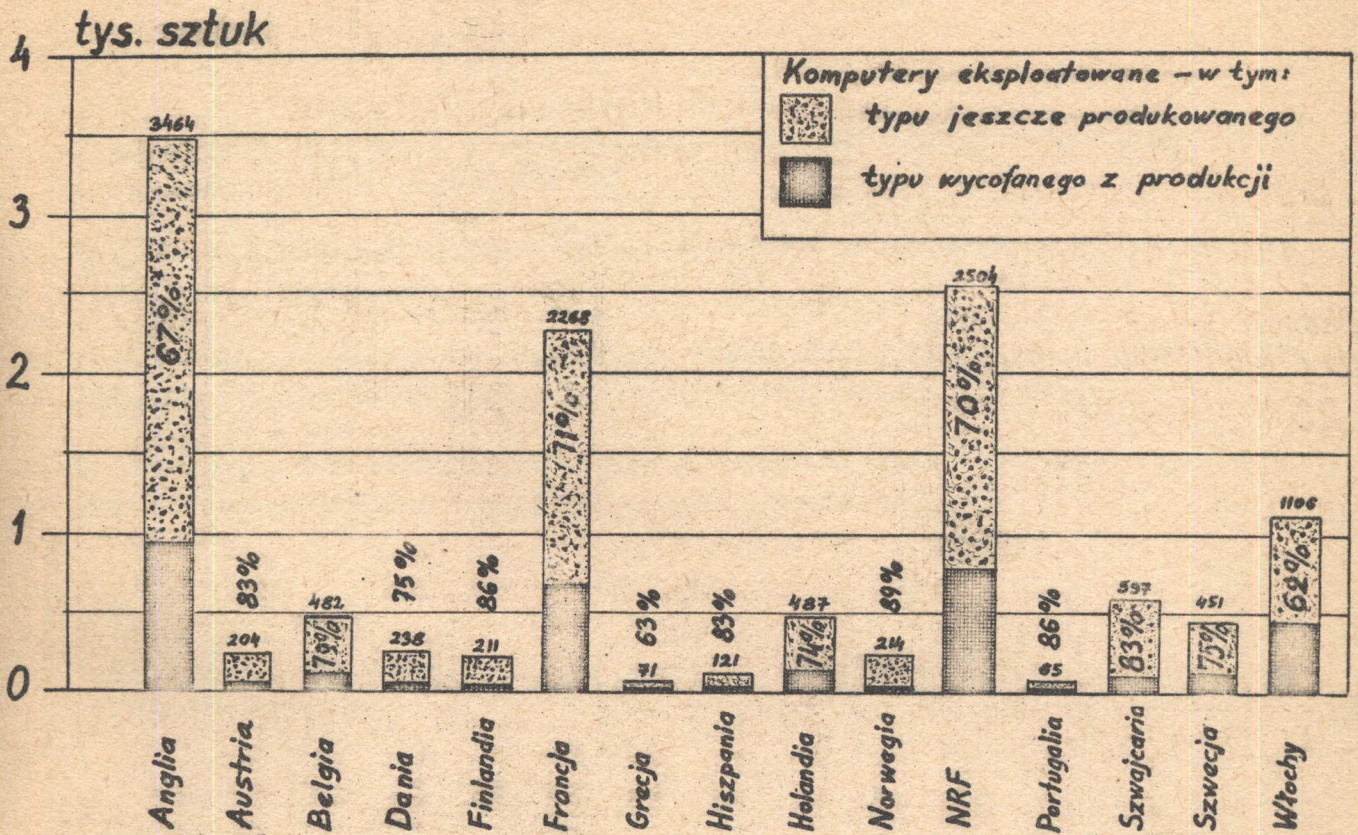 tys. sztuk
4
3
2
1
0
Komputery eksploatowane – w tym:
typu jeszcze produkowanego
typu wycofanego z produkcji
3464
67%
83%
204
482
79%
75%
238
86%
211
2268
71%
63%
71
83%
121
487
74%
89%
214
2504
70%
86%
65
597
83%
451
75%
1106
62%
Anglia
Austria
Belgia
Dania
Finlandia
Francja
Grecja
Hiszpania
Holandia
Norwegia
NRF
Portugalia
Szwajcaria
Szwecja
Włochy